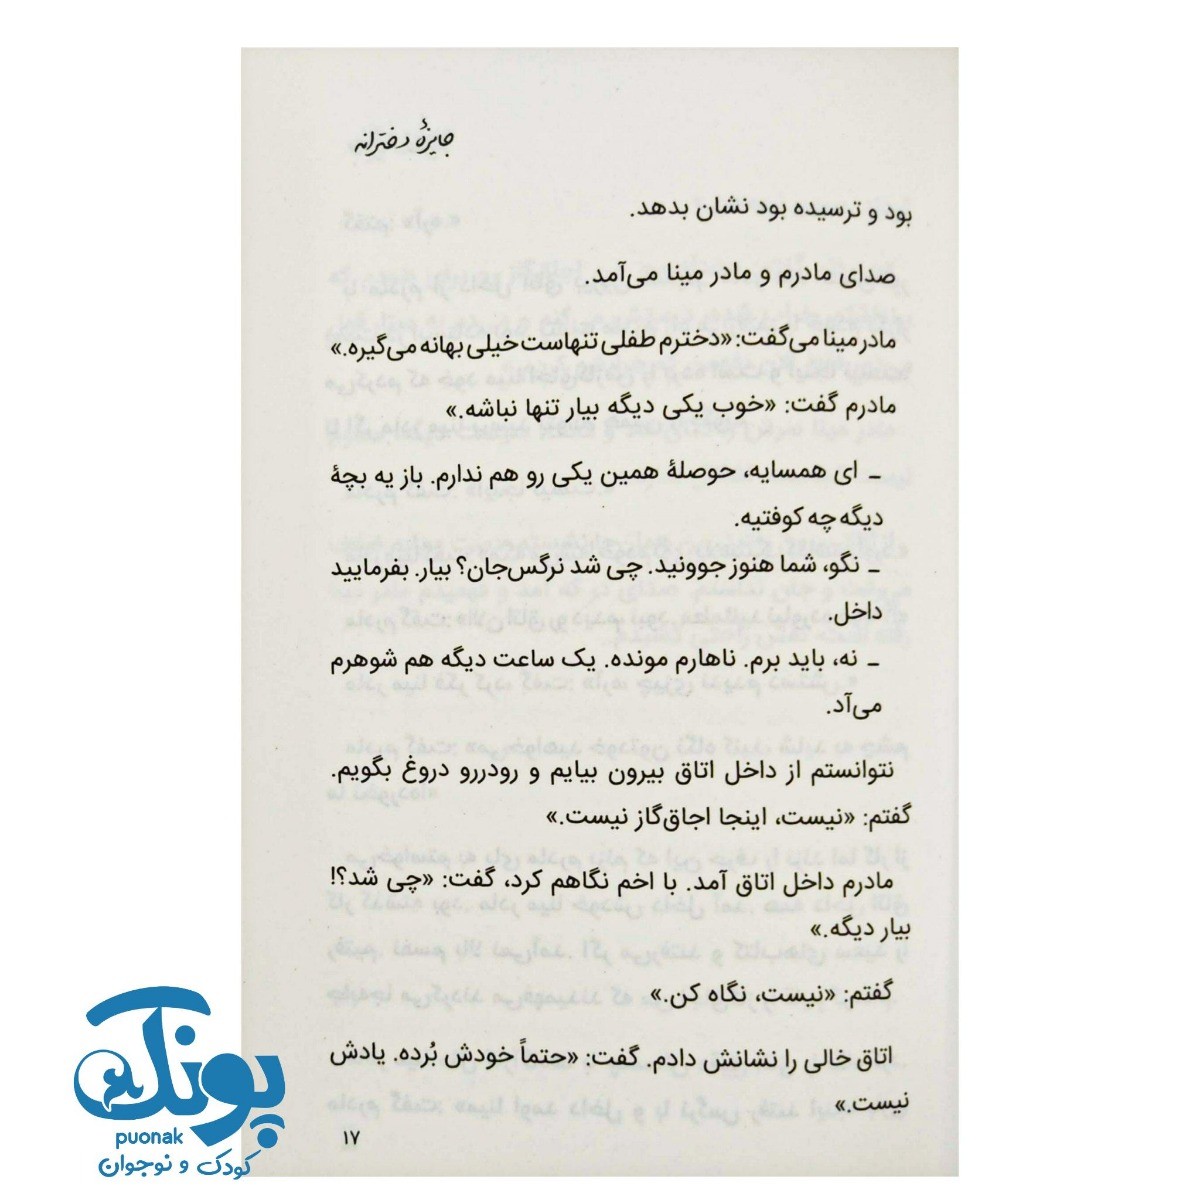 جایزهٔ دخترانه
بود و ترسیده بود نشان بدهد.
صدای مادرم و مادر مینا می‌آمد.
مادر مینا می‌گفت: «دخترم طفلی تنهاست خیلی بهانه می‌گیره.»
مادرم گفت: «خوب یکی دیگه بیار تنها نباشه.»
ـ ای همسایه، حوصلهٔ همین یکی رو هم ندارم. باز یه بچهٔ
دیگه چه کوفتیه.
ـ نگو، شما هنوز جوونید. چی شد نرگس‌جان؟ بیار. بفرمایید
داخل.
ـ نه، باید برم. ناهارم مونده. یک ساعت دیگه هم شوهرم
می‌آد.
نتوانستم از داخل اتاق بیرون بیایم و رودررو دروغ بگویم.
گفتم: «نیست، اینجا اجاق‌گاز نیست.»
مادرم داخل اتاق آمد. با اخم نگاهم کرد، گفت: «چی شد؟!
بیار دیگه.»
گفتم: «نیست، نگاه کن.»
اتاق خالی را نشانش دادم. گفت: «حتماً خودش بُرده. یادش
نیست.»
۱۷
پونک
puonak
کودک و نوجوان